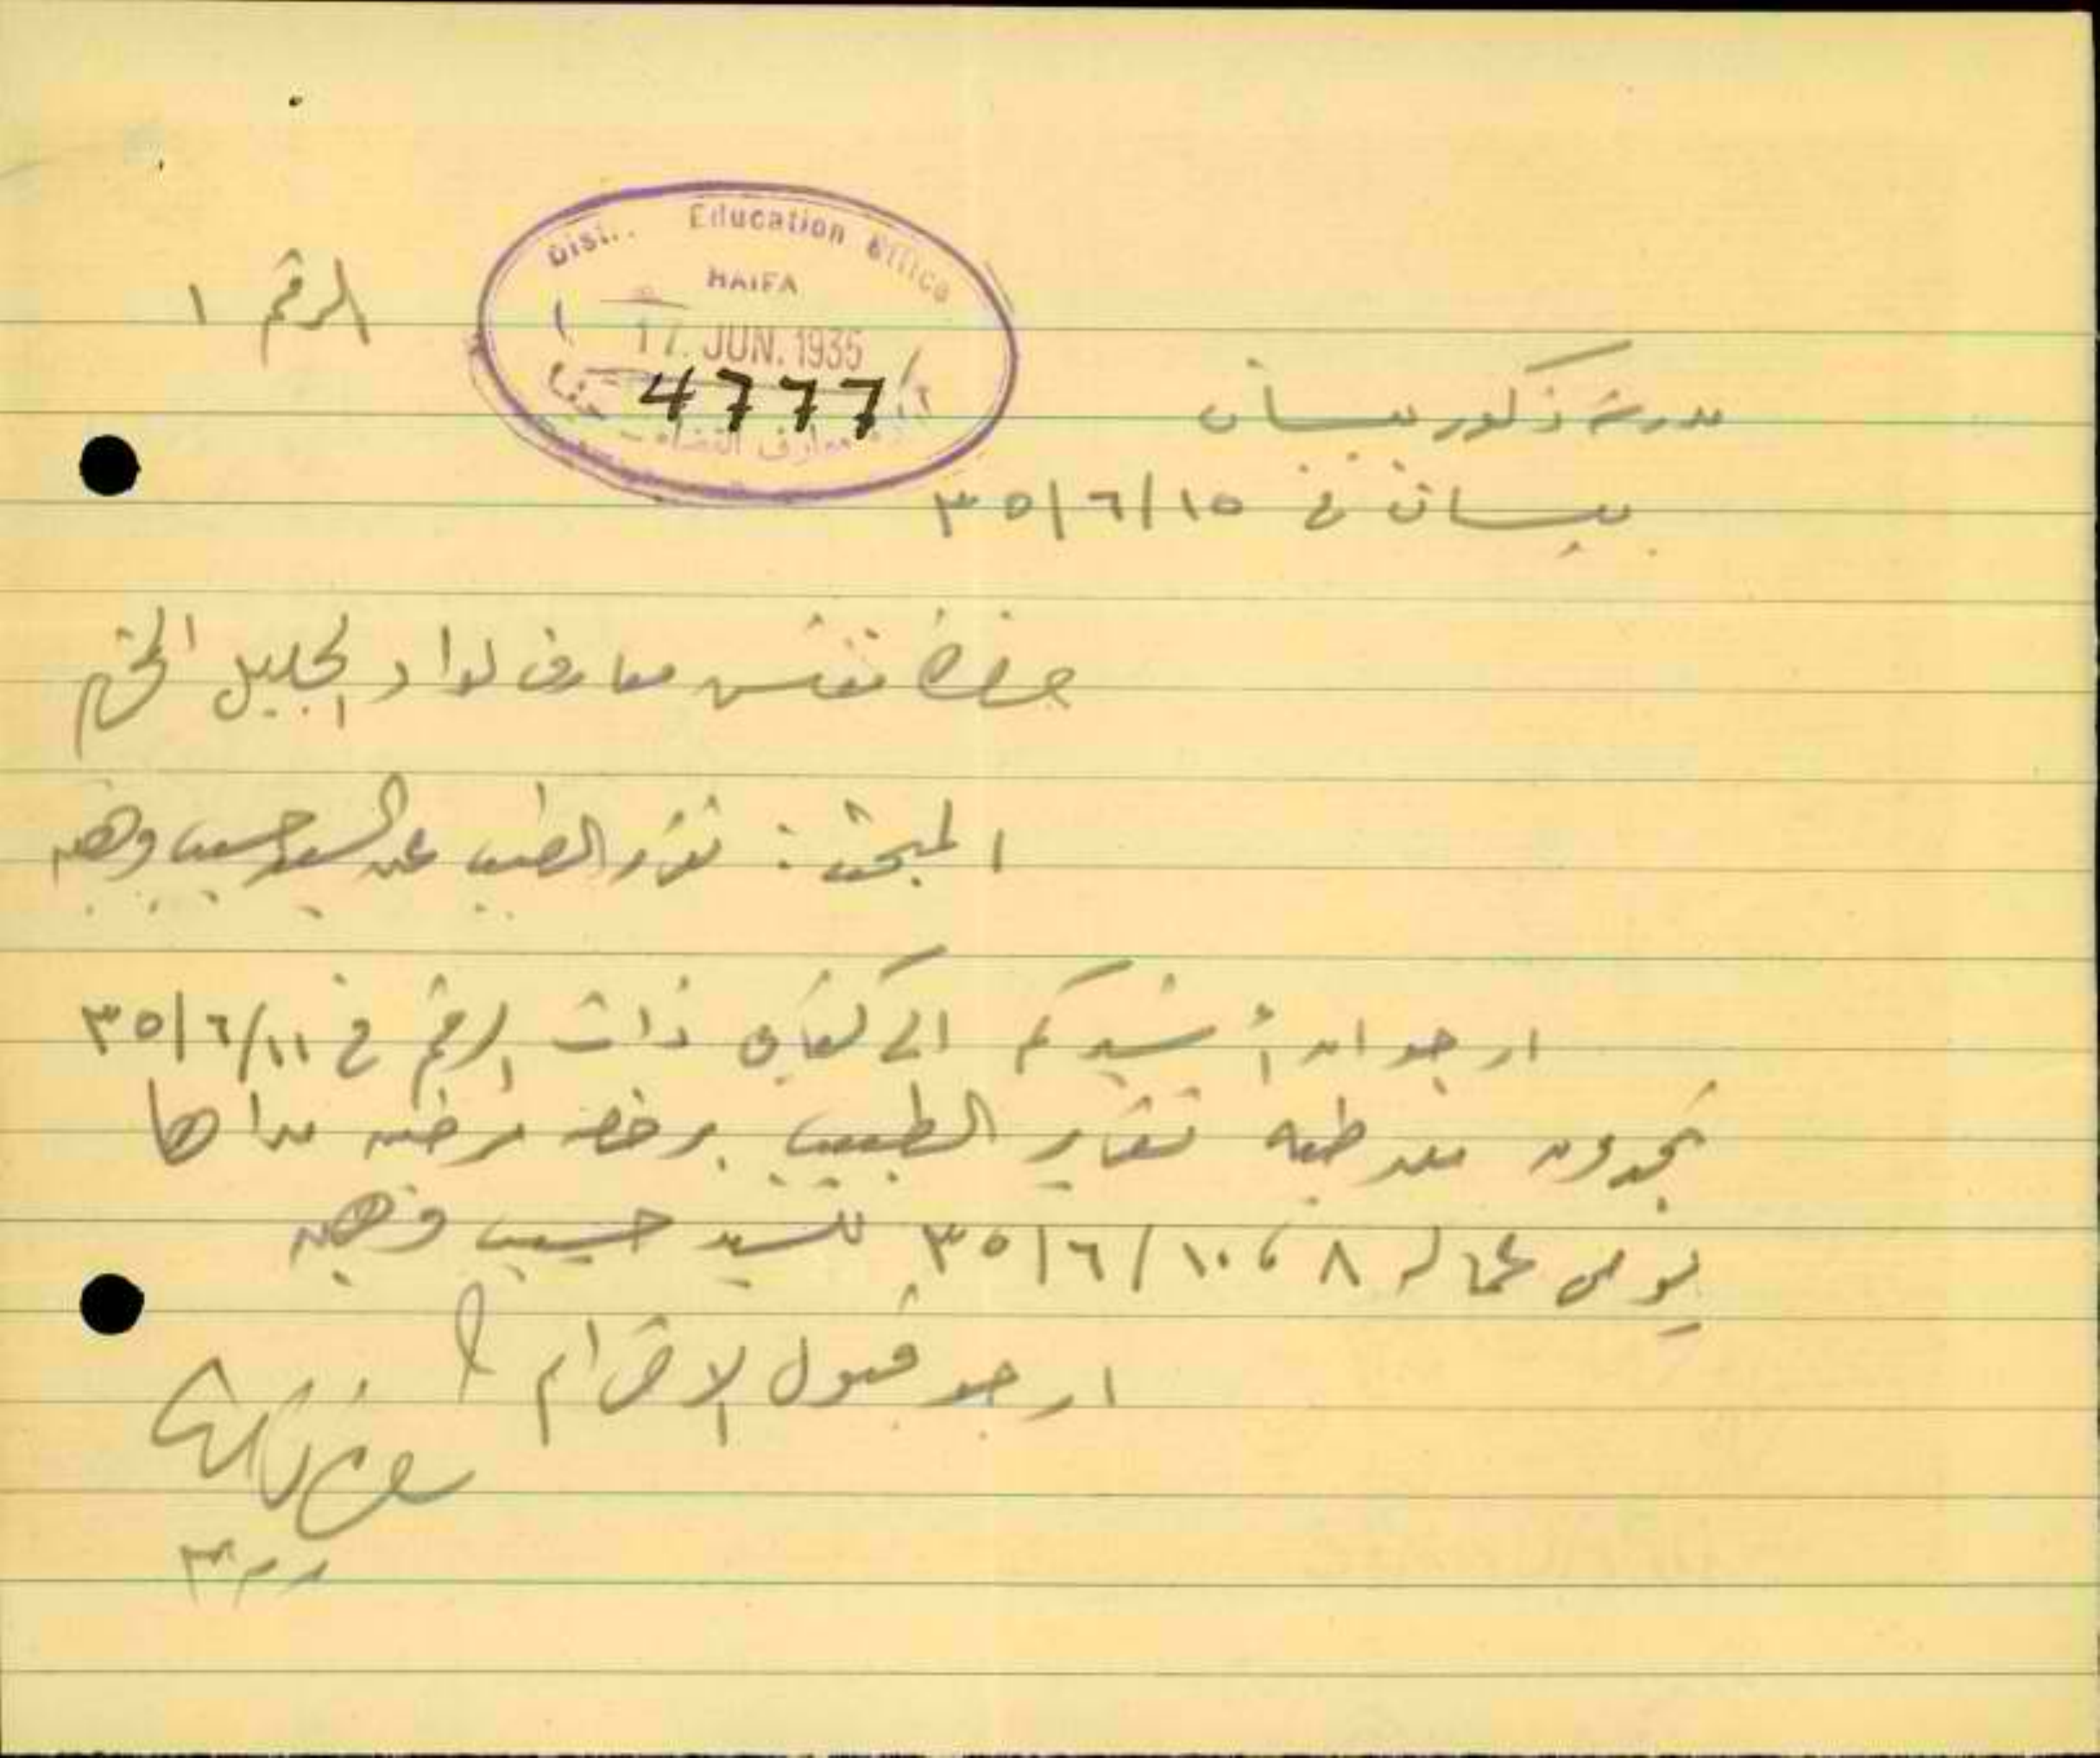 الرقم ١
Dist. Education Office
HAIFA
17. JUN. 1935
4777
معارف القضاء - حيفا
مدرسة ذكور بيسان
بيسان في ١٥/٦/٣٥
حضرة مفتش معارف لواء الجليل المحترم
المبحث : تقرير الطبيب عن السيد حسيب وهبه
ارجو ان أشيركم الى كتابي ذات الرقم في ١١/٦/٣٥
تجدون طيه تقرير الطبيب برخصة مرضيه مداها
يومان ٨ ، ١٠/٦/٣٥ للسيد حسيب وهبه
ارجو قبول الاحترام